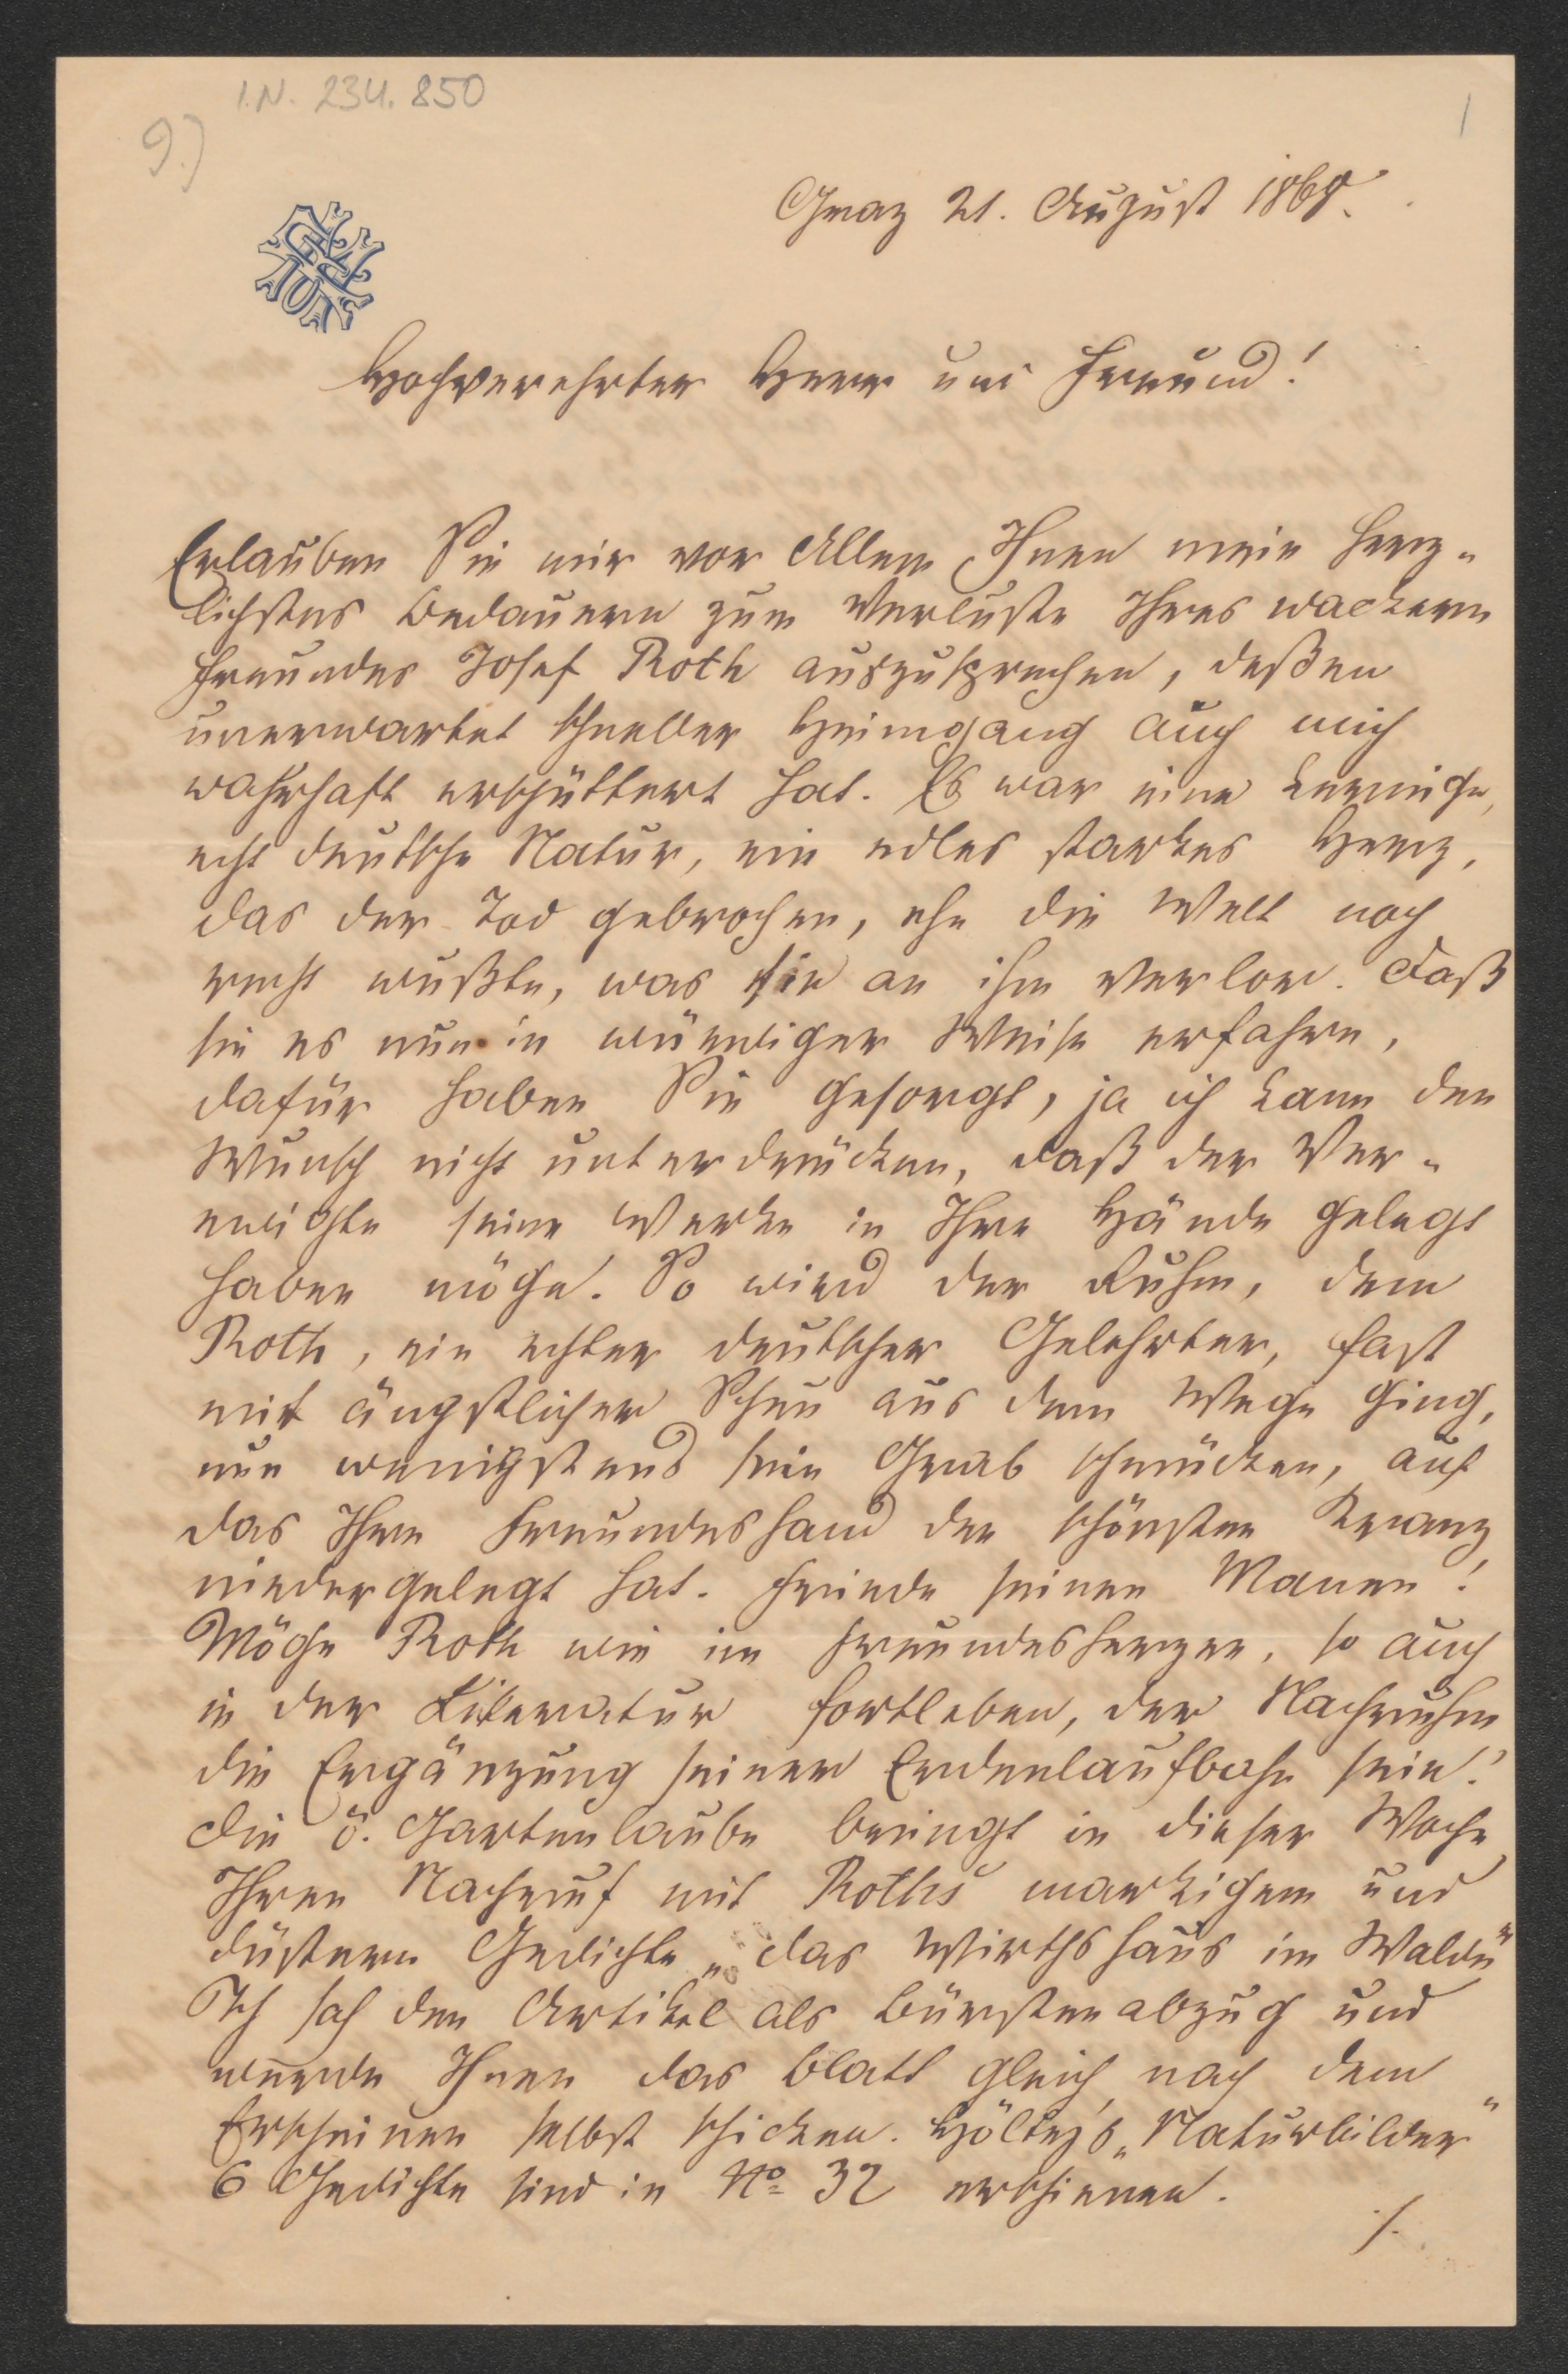 I.N. 234.850
9.)
1
Graz 21. August 1868.
Hochverehrter Herr und Freund!
Erlauben Sie mir vor Allem Ihnen mein herz-
lichstes Bedauern zum Verluste Ihres wackern
Freundes Josef Roth auszusprechen, deßen
unerwartet schneller Heimgang auch mich
wahrhaft erschüttert hat. Es war eine kernige,
echt deutsche Natur, ein edles starkes Herz,
das der Tod gebrochen, ehe die Welt noch
recht wußte, was sie an ihm verlor. Daß
sie es nun in würdiger Weise erfahre,
dafür haben Sie gesorgt, ja ich kann den
Wunsch nicht unterdrücken, daß der Ver-
ewigte seine Werke in Ihre Hände gelegt
haben möge. So wird der Ruhm, dem
Roth, ein echter deutscher Gelehrter, fast
mit ängstlicher Scheu aus dem Wege ging,
nun wenigstens sein Grab schmücken, auf
das Ihre Freundeshand den schönsten Kranz
niedergelegt hat. Friede seinen Manen!
Möge Roth wie im Freundesherzen, so auch
in der Literatur fortleben, der Nachruhm
die Ergänzung seiner Erdenlaufbahn sein!
Die ö. Gartenlaube bringt in dieser Woche
Ihren Nachruf mit Roths markigem und
düsterm Gedichte „das Wirthshaus im Walde“
Ich sah den Artikel als Bürstenabzug und
werde Ihnen das Blatt gleich nach dem
Erscheinen selbst schicken. Höltys „Naturbilder“
6 Gedichte sind in No 32 erschienen.
./.